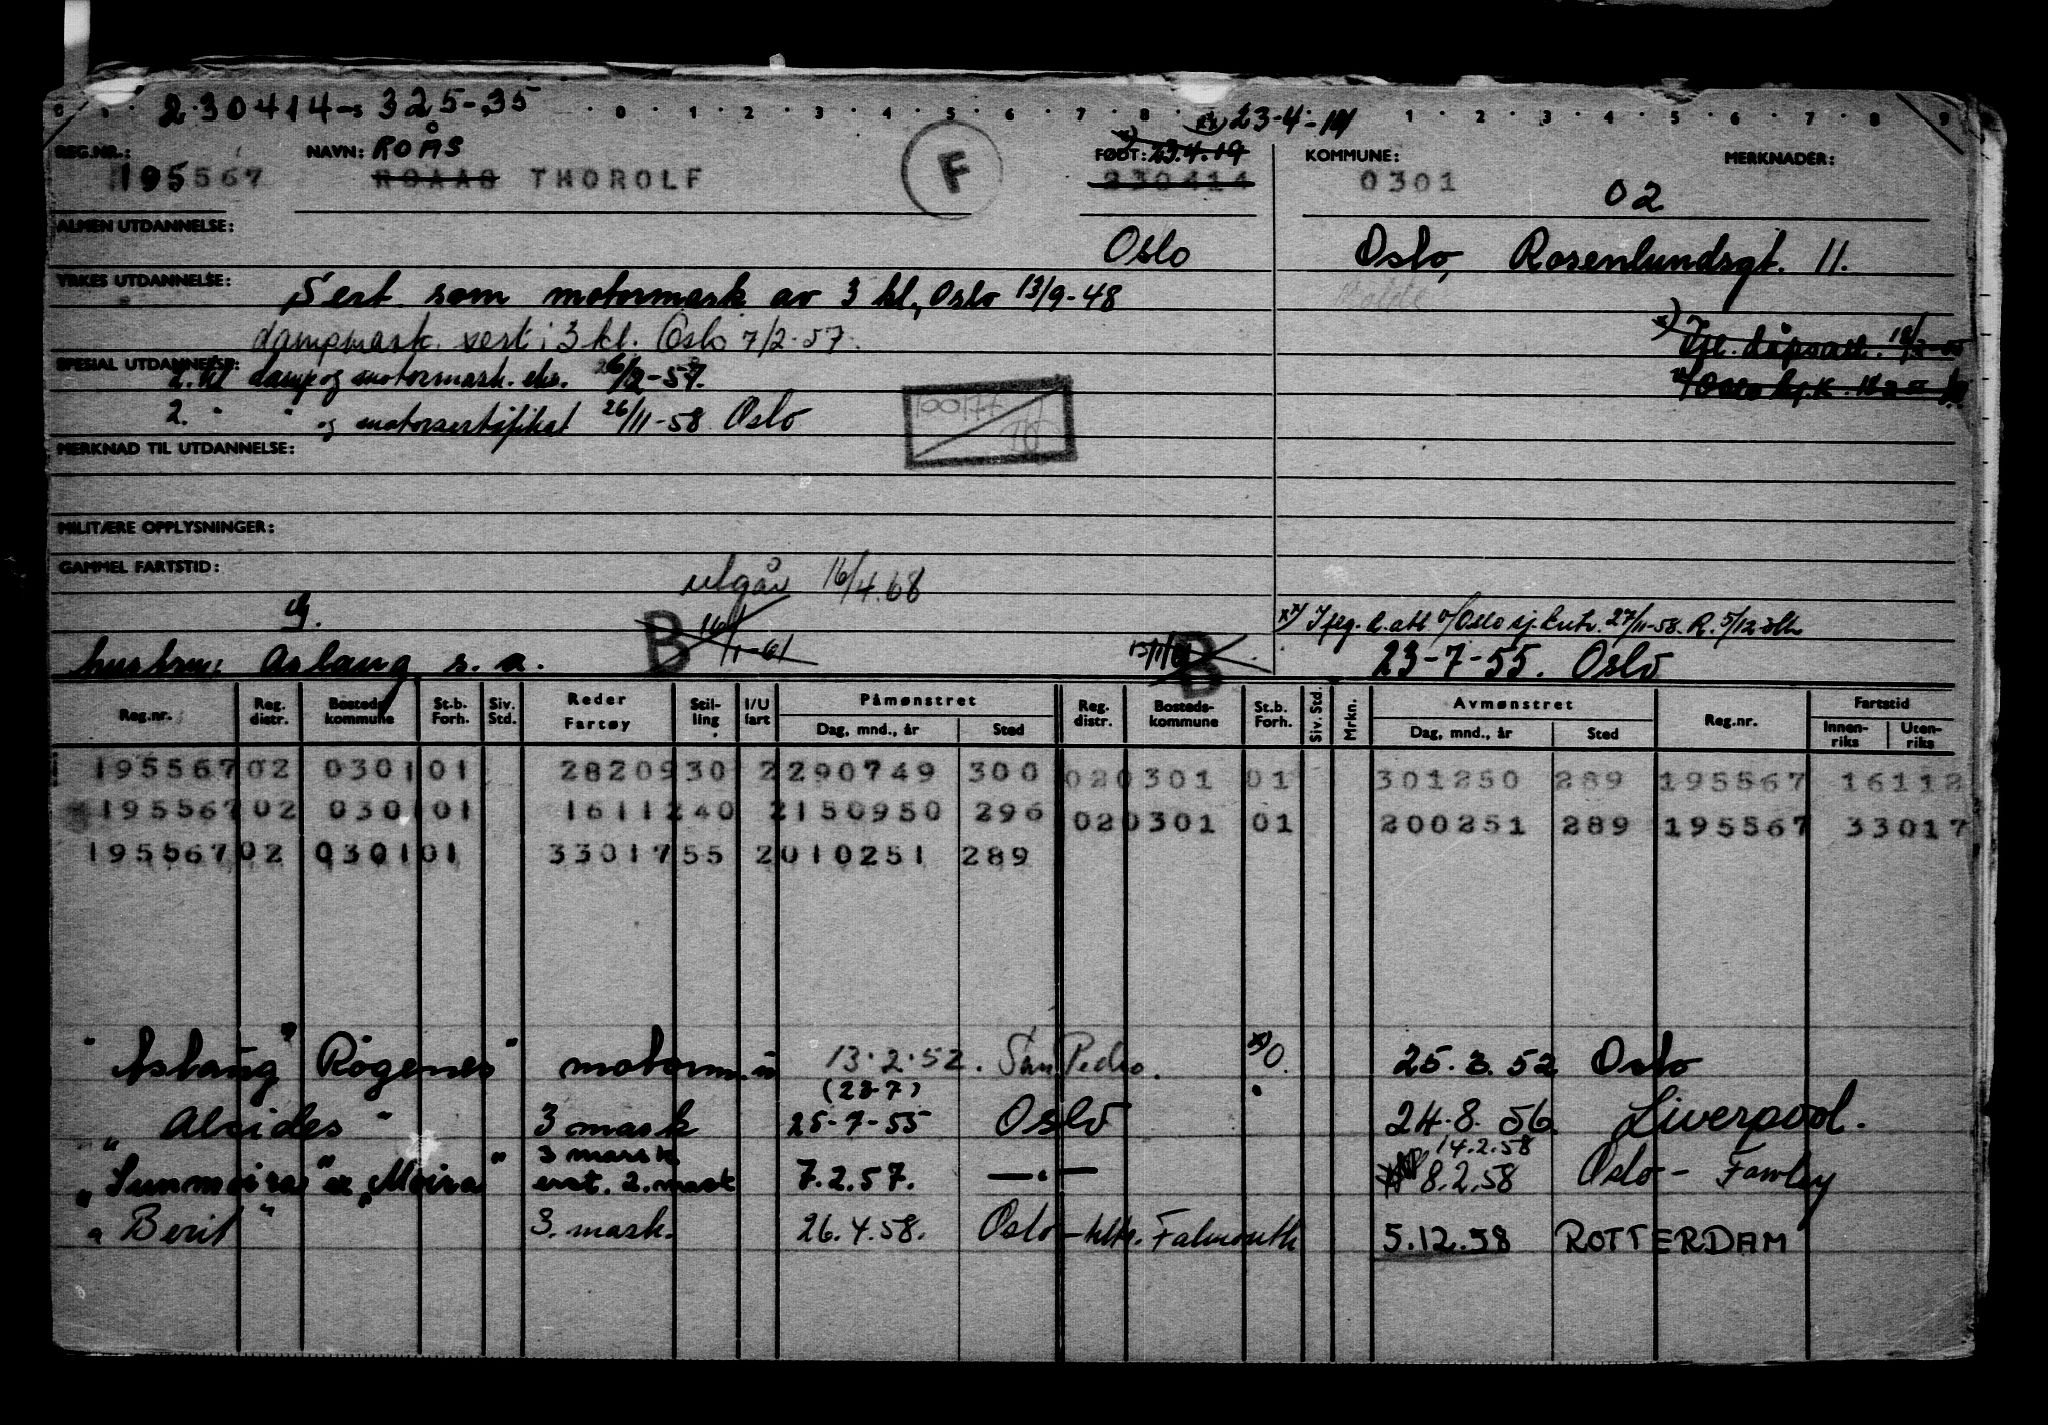 230414-325-35
0 1 2 3 4 5 6 7 8 1 2 3 4 5 6 7 8 9
xx) 23-4-14
REG.NR.: NAVN: ROÅS FØDT: 23.4.19 KOMMUNE: MERKNADER:
195567 ROAAS THOROLF F 230414 0301 02
ALMEN UTDANNELSE: Oslo Oslo, Rosenlundsgt. 11.
YRKES UTDANNELSE: Sert. som motormask av 3 kl, Oslo 13/9-48
dampmask. sert i 3 kl. Oslo 7/2-57.
SPESIAL UTDANNELSE: 2. kl damp og motormask. eks.
2. " " og motorsertifikat 26/11-58 Oslo
MERKNAD TIL UTDANNELSE:
MILITÆRE OPPLYSNINGER:
GAMMEL FARTSTID:
utgår 16/4.68
B
hustru: Aslaug s. a. B 23-7-55. Oslo
Reg.nr. Reg. distr. Bosteds-kommune St.b. Forh. Siv. Std. Reder Fartøy Stil-ling I/U fart Påmønstret Dag, mnd., år Sted Reg. distr. Bosteds-kommune St.b. Forh. Siv. Std. Mrkn. Avmønstret Dag, mnd., år Sted Reg.nr. Fartstid Innen-riks Uten-riks
195567 02 0301 01 28209 30 2 290749 300 02 0301 01 301250 289 195567 16112
195567 02 0301 01 16112 40 2 150950 296 02 0301 01 200251 289 195567 33017
195567 02 0301 01 33017 55 2 010251 289
"Aslaug Rogenes" motorm. 13.2.52. San Pedro. 25.3.52 Oslo
(23-7)
"Alcides" 3 mask 25-7-55 Oslo 24.8.56 Liverpool.
3 mask 14.2.58
"Sunmoira" ex "Moira" 2. mask 7.2.57. — " — 8.2.58 Oslo - Fawley
"Berit" 3. mask. 26.4.58. Oslo Falmouth 5.12.58 ROTTERDAM